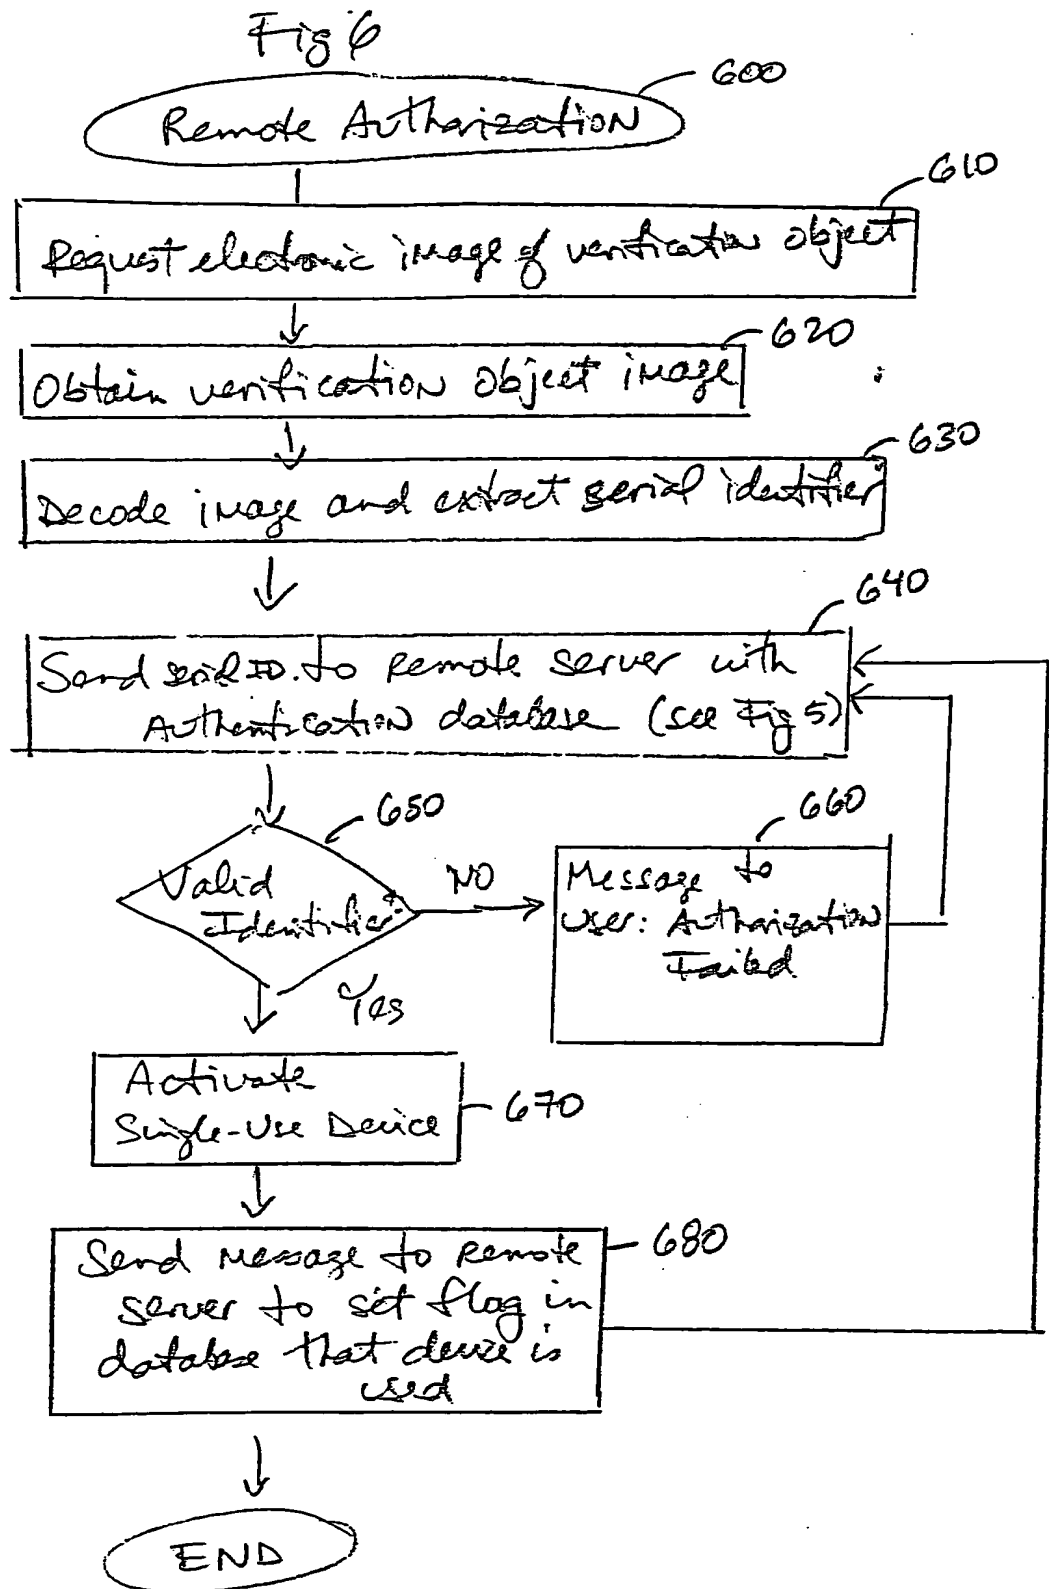 Fig 6
600
Remote Authorization
610
Request electronic image of verification object
620
Obtain verification object image
630
Decode image and extract serial identifier
640
Send serial ID. to remote server with
Authentication database (see Fig 5)
650
Valid
Identifier?
NO
Yes
660
Message to
user: Authorization
Failed
Activate
Single-Use Device
670
Send message to remote
server to set flag in
database that device is
used
680
END